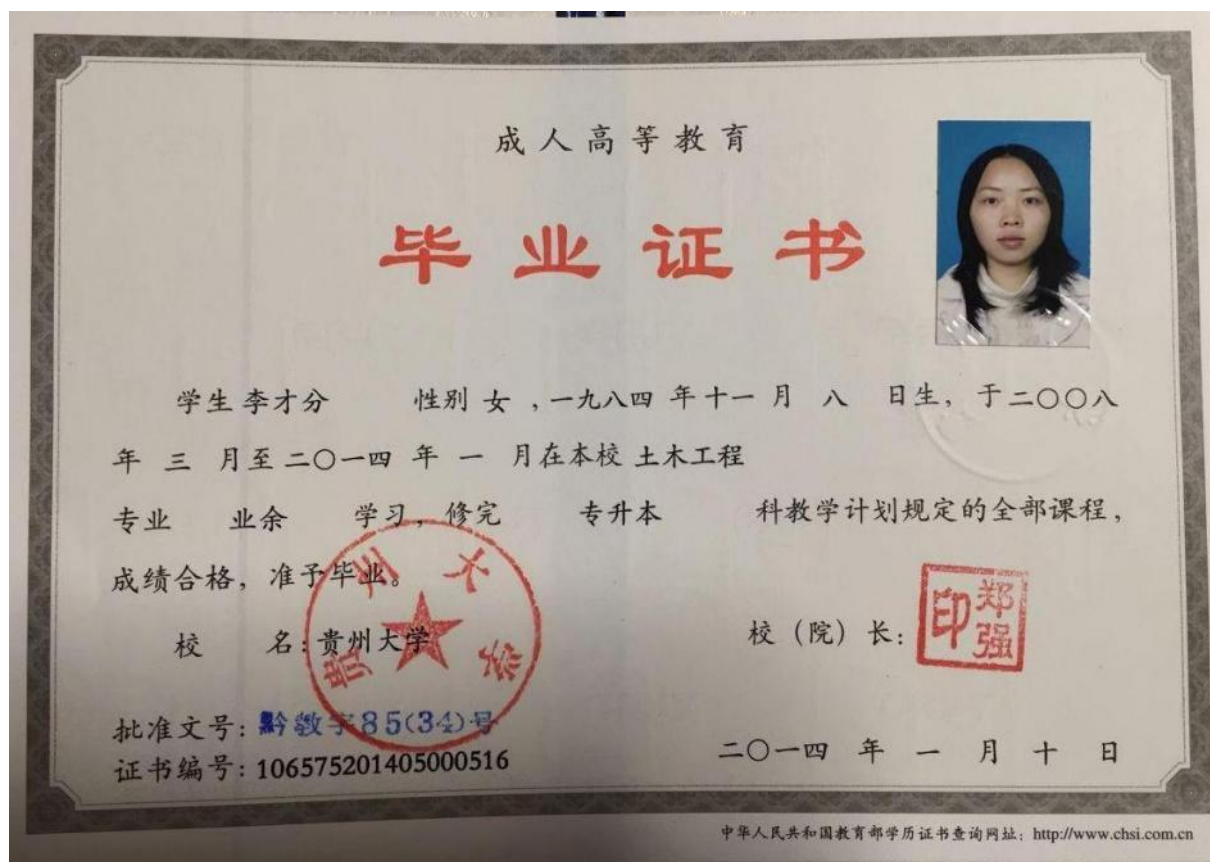 成人高等教育
毕业证书
学生 李才分 性别 女 ，一九八四 年 十一 月 八 日生，于二〇〇八
年 三 月至 二〇一四 年 一 月在本校 土木工程
专业 业余 学习，修完 专升本 科教学计划规定的全部课程，
成绩合格，准予毕业。
校 名：贵州大学
贵州大学
校（院）长：
郑强印
批准文号：黔教字85(34)号
证书编号：106575201405000516
二〇一四 年 一 月 十 日
中华人民共和国教育部学历证书查询网址：http://www.chsi.com.cn